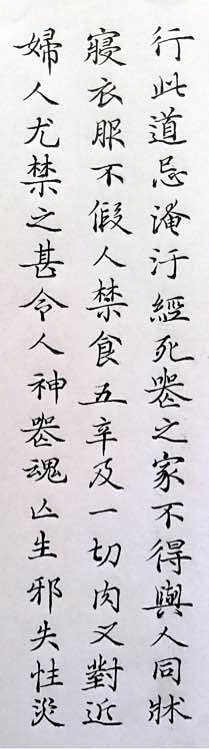 行此道忌淹汙經死喪之家不得與人同牀
寢衣服不假人禁食五辛及一切肉又對近
婦人尤禁之甚令人神喪魂亡生邪失性災